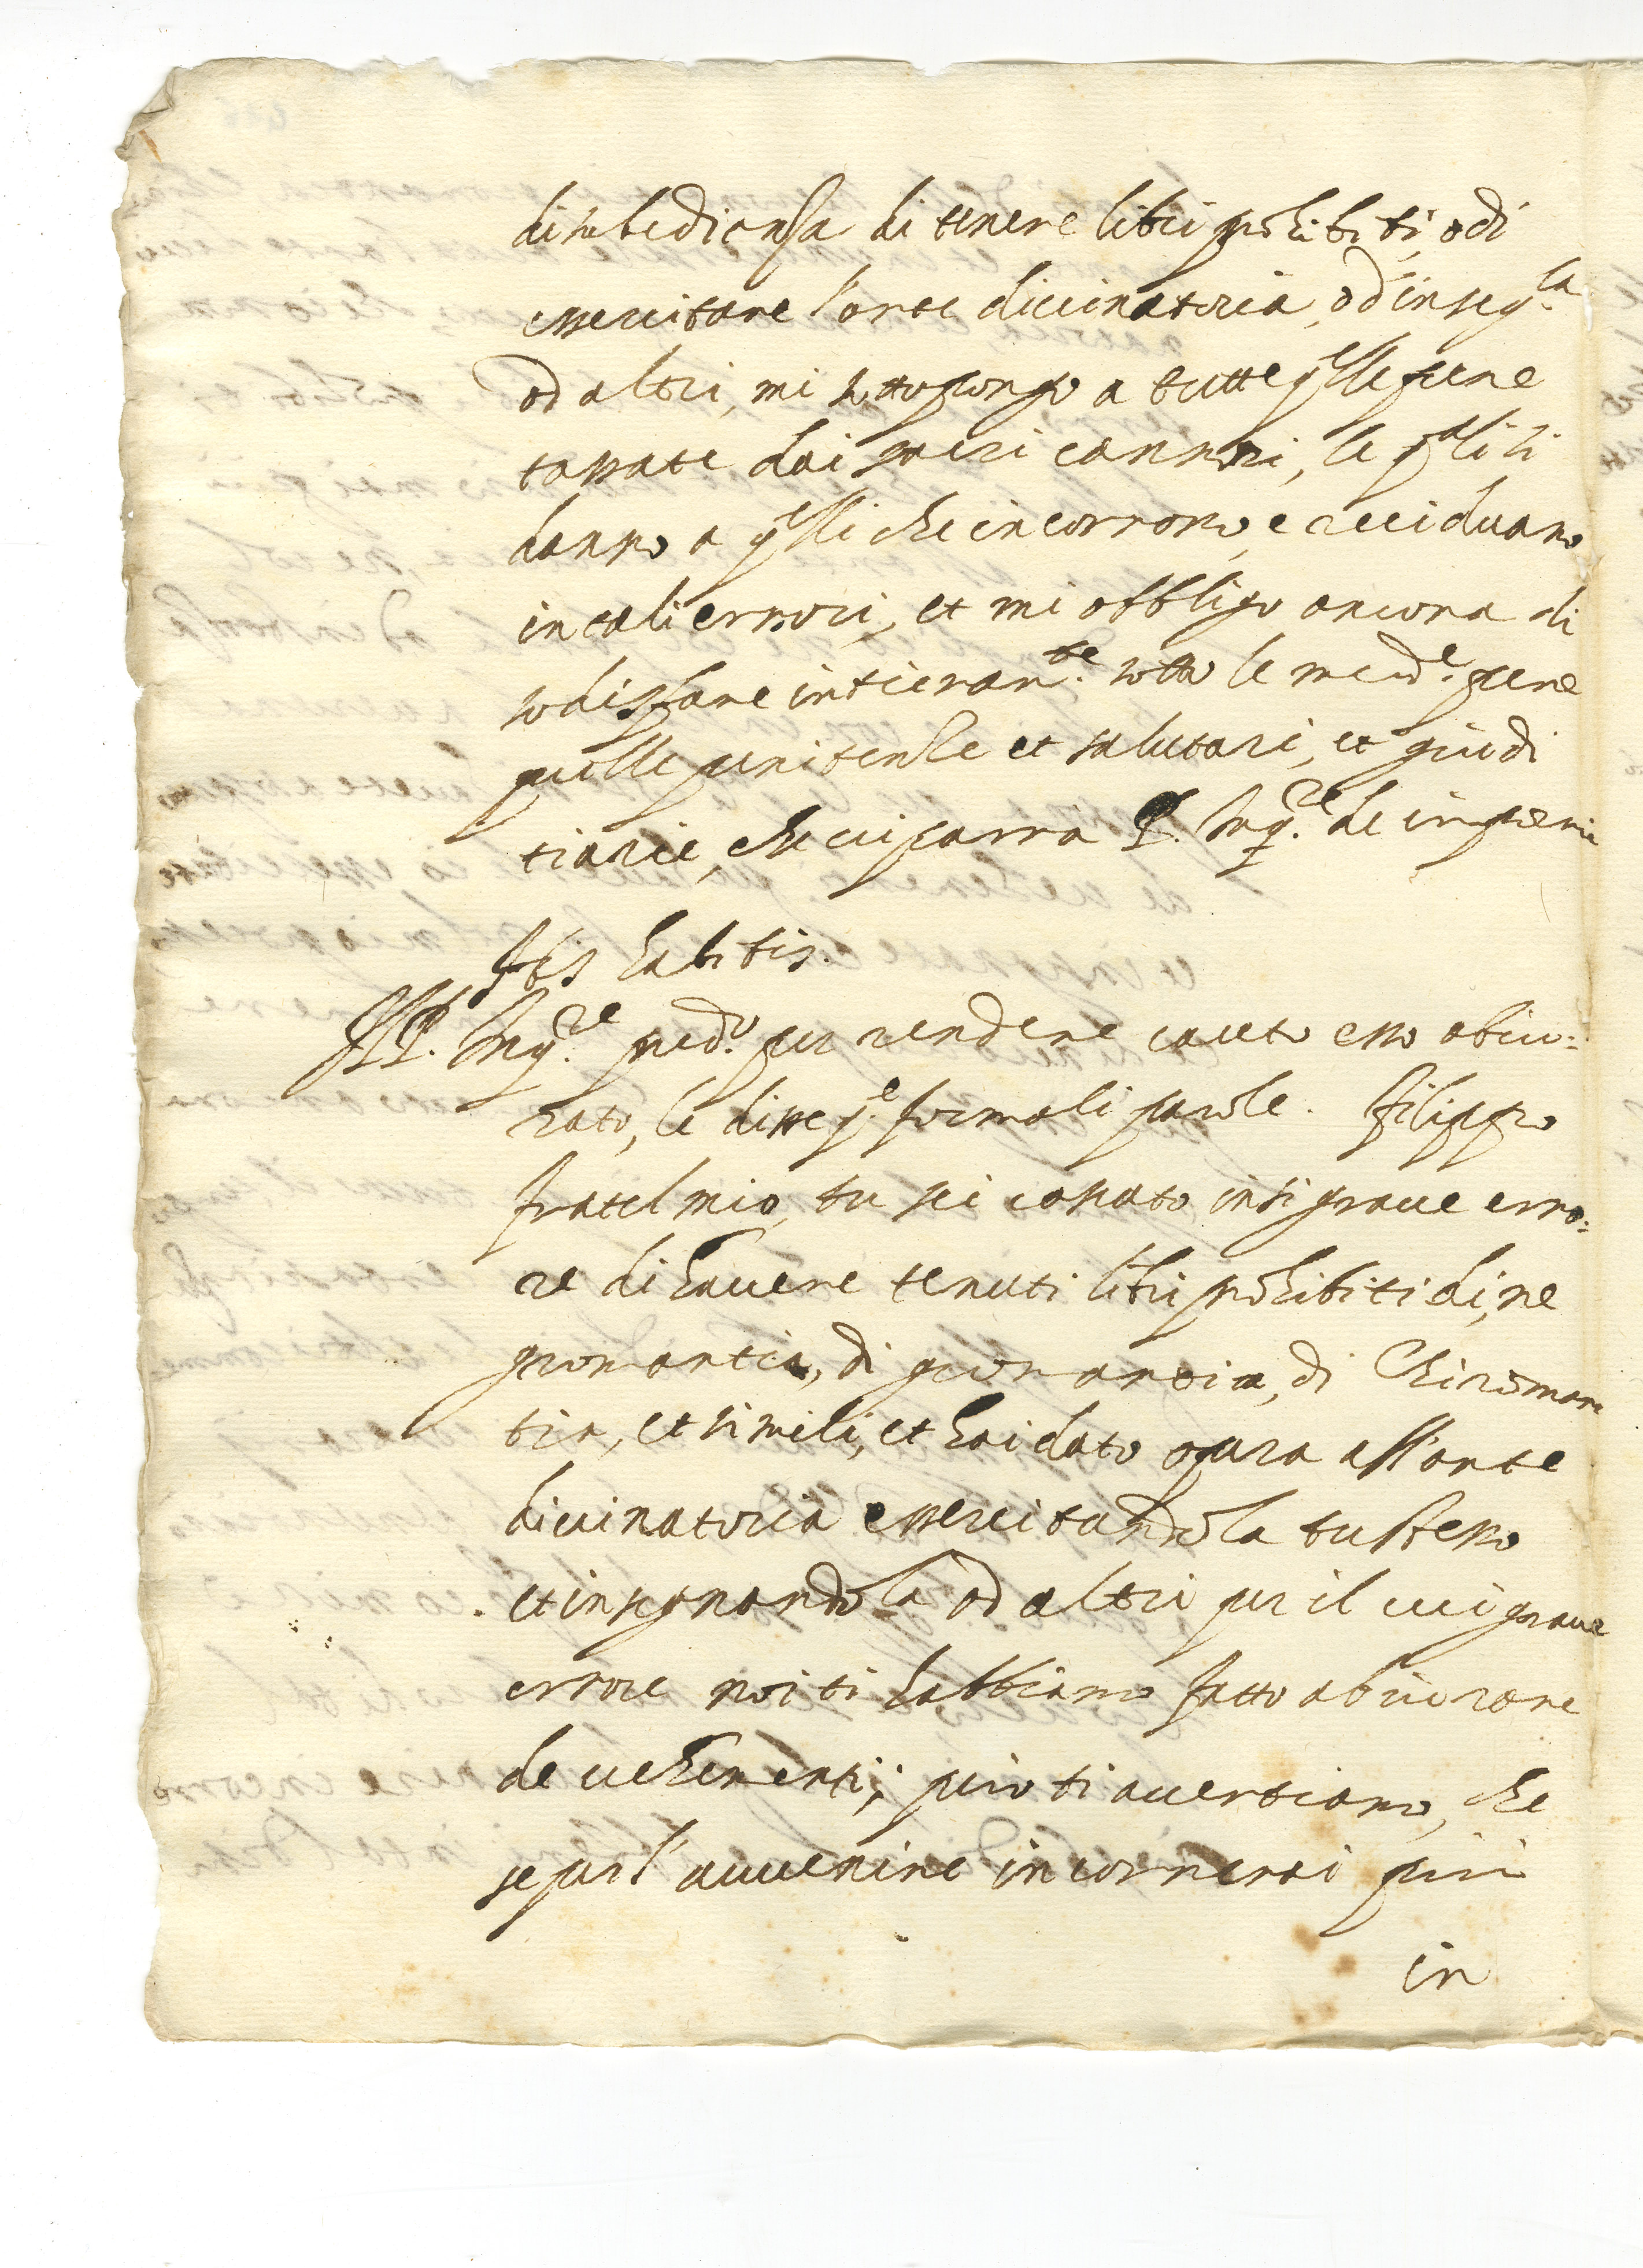 disubedienza di tenere libri prohibiti, o di
essercitare l'arte divinatoria, od inseg.la
ad altri, mi sottopongo a tutte q.elle pene
tassate dai sacri cannoni, le q.ali si
danno a q.elli che incorrono, e recidvano
in tali errori, et mi obbligo ancora di
sodisfare intieram.te sotto le med.e pene
quelle penitenze et salutari, et giudi
tiarie, che vi parra P. Inq.re de imponermi
His habitis.
Il P. Inq.re pred.o per rendere cauto esso abiu=
rato, le disse q.e formali parole. Filippo
fratel mio, tu sei cascato in sì grave erro=
re di havere tenuti libri prohibiti di, ne
gromantia, di geomantia, di Chiroman
tia, et simili, et hai dato opera all'arte
divinatoria essercitandola tu stesso
et insegnandola ad altri per il cui grave
errore noi ti habbiamo fatto abiurare
de vehementi; però ti avertiamo, che
se per l'avvenire incorrerai più
in